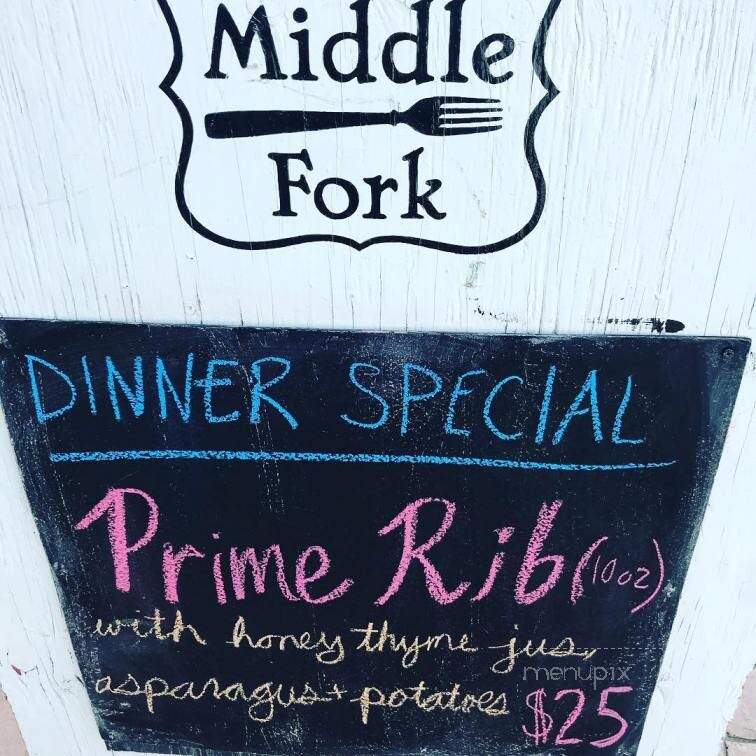 Middle
Fork
DINNER SPECIAL
Prime Rib (10oz)
with honey thyme jus,
asparagus + potatoes $25
menupix